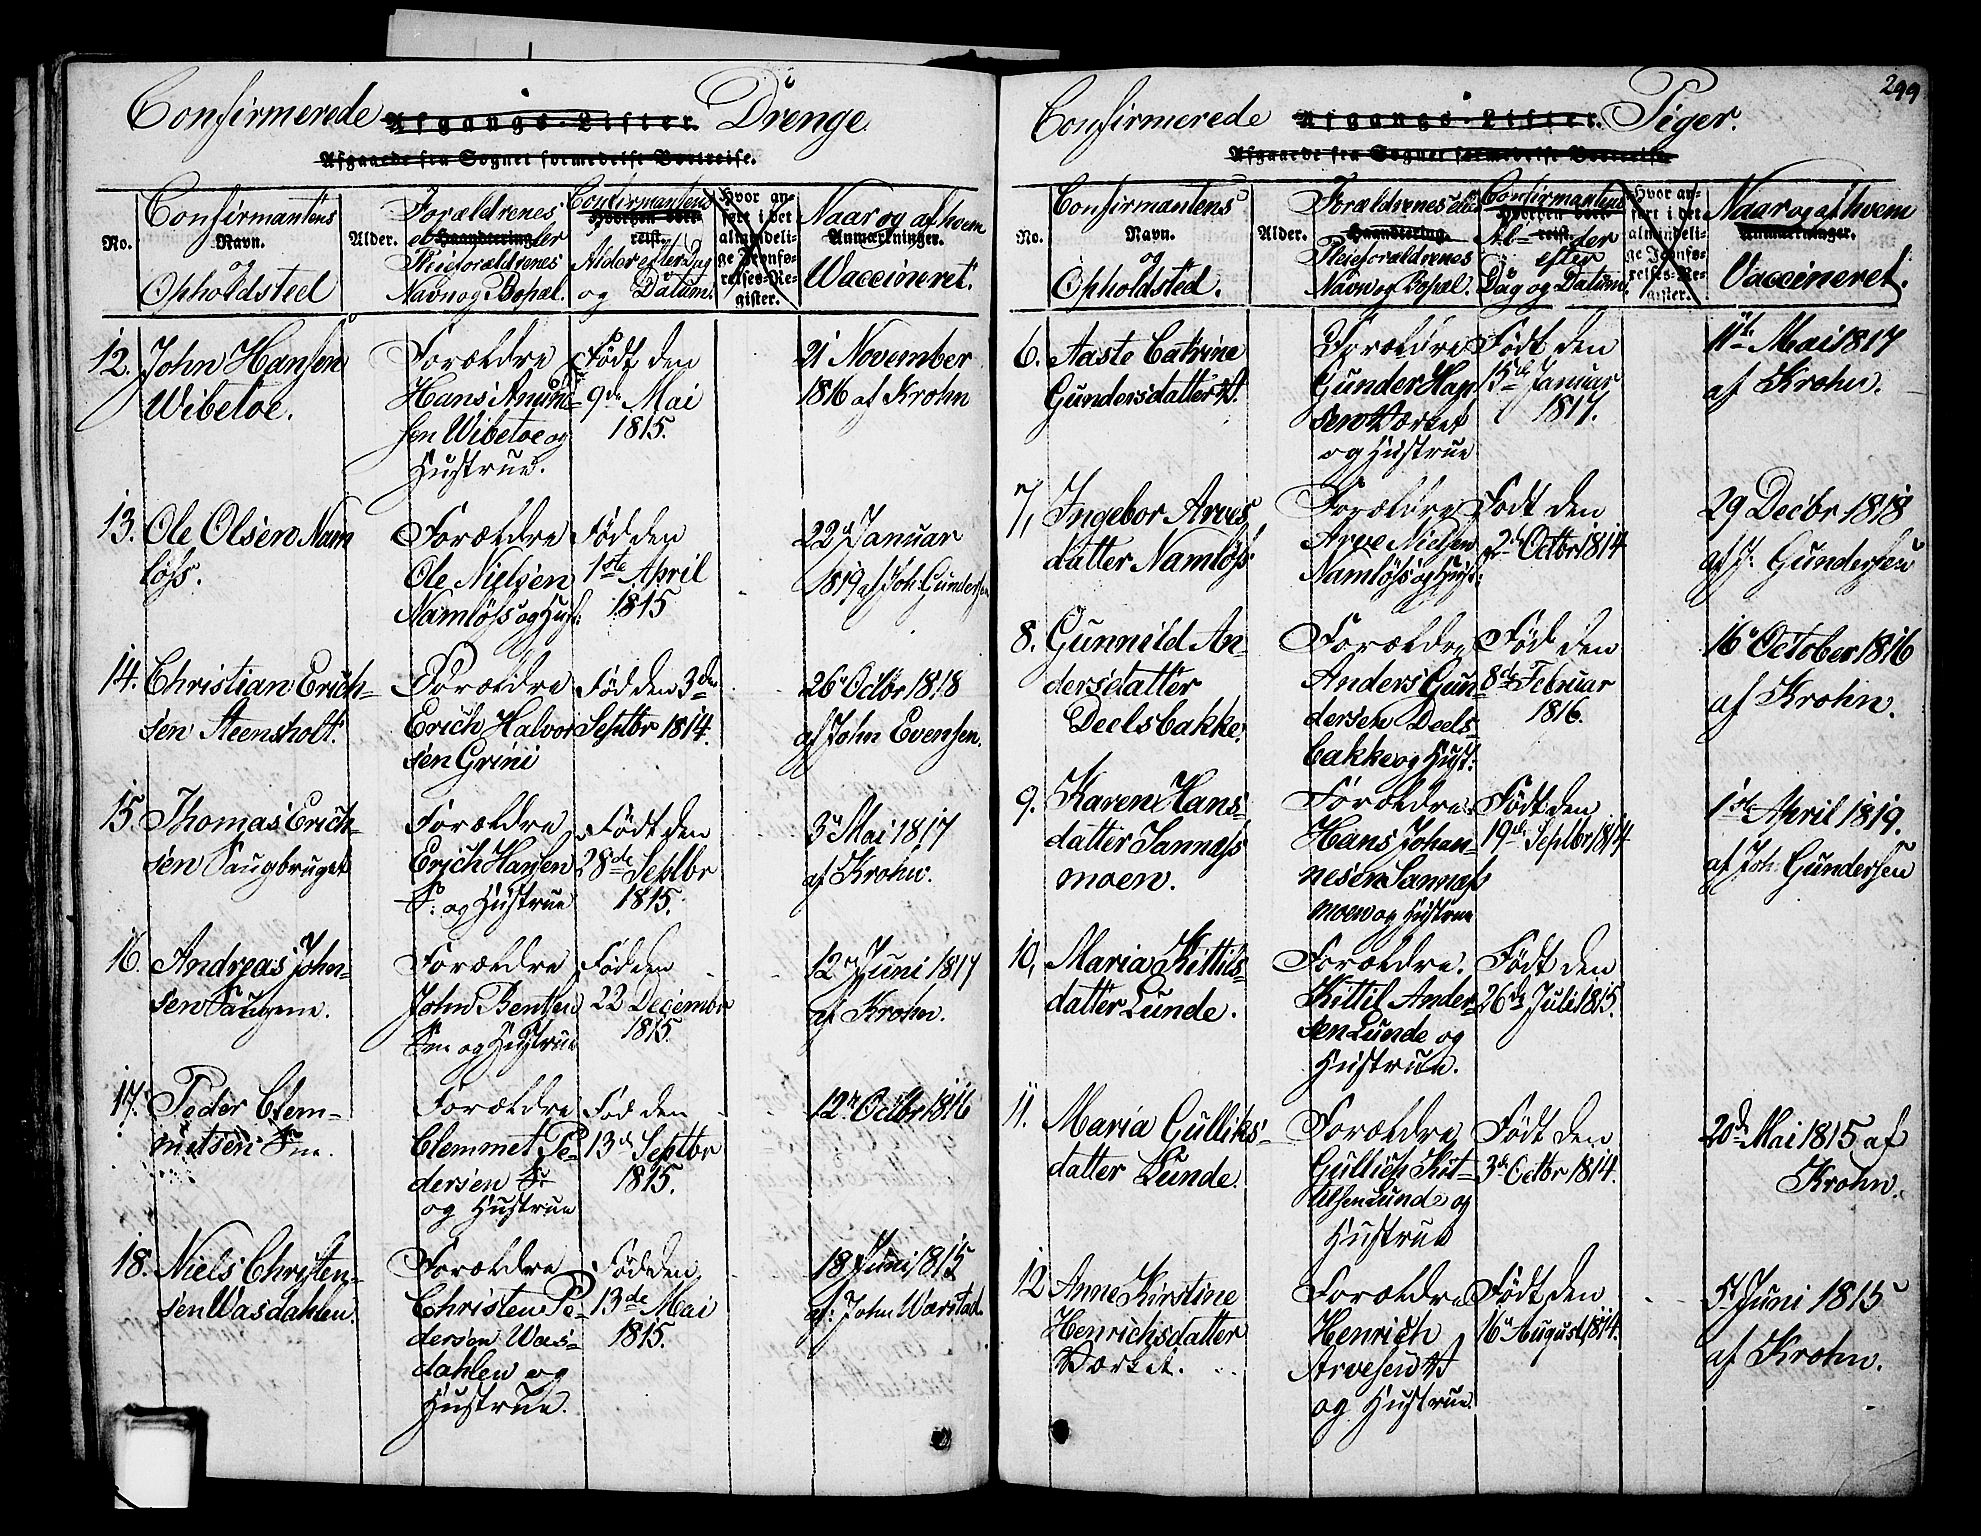 Confirmerede Afgangs-Lister. Drenge.
Afgaaede fra Sognet formedelst Bortreise.
No.
Confirmantens
Navn.
og
Opholdsted
Alder.
Forældrenes
el Haandtering ler
Pleieforældrenes
Navn og Bopæl.
Confirmantens
Hvorhen bort-
reist.
Alder efter Dag
og Datum.
Hvor an-
ført i det
almindeli-
ge Jevnfø-
relses-Re-
gister.
Naar og af hvem
Anmærkninger.
Vaccineret.
12. John Hansen
Wibetoe.
Forældre
Hans Amund-
sen Wibetoe og
Hustrue.
Født den
9de Mai
1815.
21 November
1816 af Krohn
13. Ole Olsen Nam
löss.
Forældre
Ole Nielsen
Namlöss og Hust:
Fød den
1ste April
1815
22d Januar
1819 af Joh: Gundersen
14. Christian Erich-
sen Steensholt.
Forældre
Erich Halvor
sen Grini
Fød den 3den
Septbr 1814.
26d Octbr 1818
af John Evensen.
15. Thomas Erich-
sen Saugbruget
Forældre
Erich Hansen
S: og Hustrue
Født den
28de Septbr
1815.
3d Mai 1817
af Krohn.
16. Andreas John-
sen Saugene.
Forældre
John Bentsen
Sne og Hustrue
Fød den
22 Decembr
1815.
12 Juni 1817
af Krohn.
17. Peder Clem-
metsen Sne.
Forældre
Clemmet Pe-
dersen S:
og Hustrue
Fød den
13de Septbr
1815.
12te Octbr 1816
18. Niels Christen-
sen Wasdahlen.
Forældre
Christen Pe-
dersen Was-
dahlen og
Hustrue.
Fød den
13de Mai
1815.
18 Juni 1815
af: John Wærstad
299
Confirmerede Afgangs-Lister. Piger.
Afgaaede fra Sognet formedelst Bortreise.
No.
Confirmantens
Navn.
og
Opholdsted.
Alder.
Forældrenes el:
Haandtering.
Pleieforældrenes
Navn og Bopæl.
Confirmantens
Hvorhen bort-
Al- reist. der
efter
Dag og Datum.
Hvor an-
ført i det
almindeli-
ge Jevnfø-
relses-Re-
gister.
Naar og af hvem
Anmærkninger.
Vaccineret.
6. Aaste Catrine
Gundersdatter V.
Forældre
Gunder Han
sen Værket
og Hustrue
Født den
15de Januar
1817.
11te Mai 1817
af Krohn.
7, Ingebor Arves
datter Namlöss
Forældre
Arve Nielsen
Namlöss og Hust:
Født den
2de Octbr 1814
29 Decbr 1818
af J: Gundersen
8. Gunnild An-
dersdatter
Deelsbakke.
Forældre
Anders Gun-
dersen Deels-
bakke og Hust:
Fød den
8de Februar
1816.
16de October 1816
af Krohn.
9. Karen Hans-
datter Sannæss
moen.
Forældre
Hans Johan-
nesen Sannæss
moen og Hustrue
Født den
19de Septbr 1814
1ste April 1819.
af Joh: Gundersen
10, Maria Kittils-
datter Lunde.
Forældre.
Kittil Ander-
sen Lunde og
Hustrue.
Født den
26de Juli 1815.
11. Maria Gulliks-
datter Lunde.
Forældre
Gullich Kit-
tilsen Lunde og
Hustrue
Født den
3de Octbr 1814.
20de Mai 1815 af
Krohn.
12 Anne Kirstine
Henrichsdatter
Værket.
Forældre
Henrich
Arvesen V
og Hustrue.
Født den
16de August 1814.
5te Juni 1815
af Krohn.